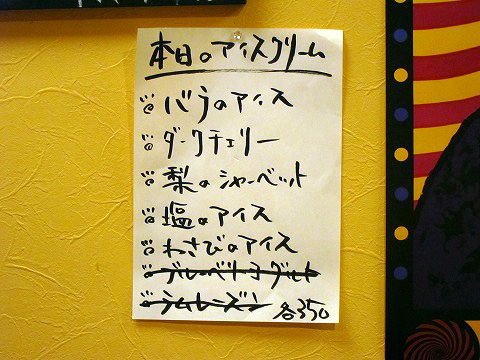 本日のアイスクリーム
バラのアイス
ダークチェリー
梨のシャーベット
塩のアイス
わさびのアイス
ブルーベリーヨーグルト
ラムレーズン
各350